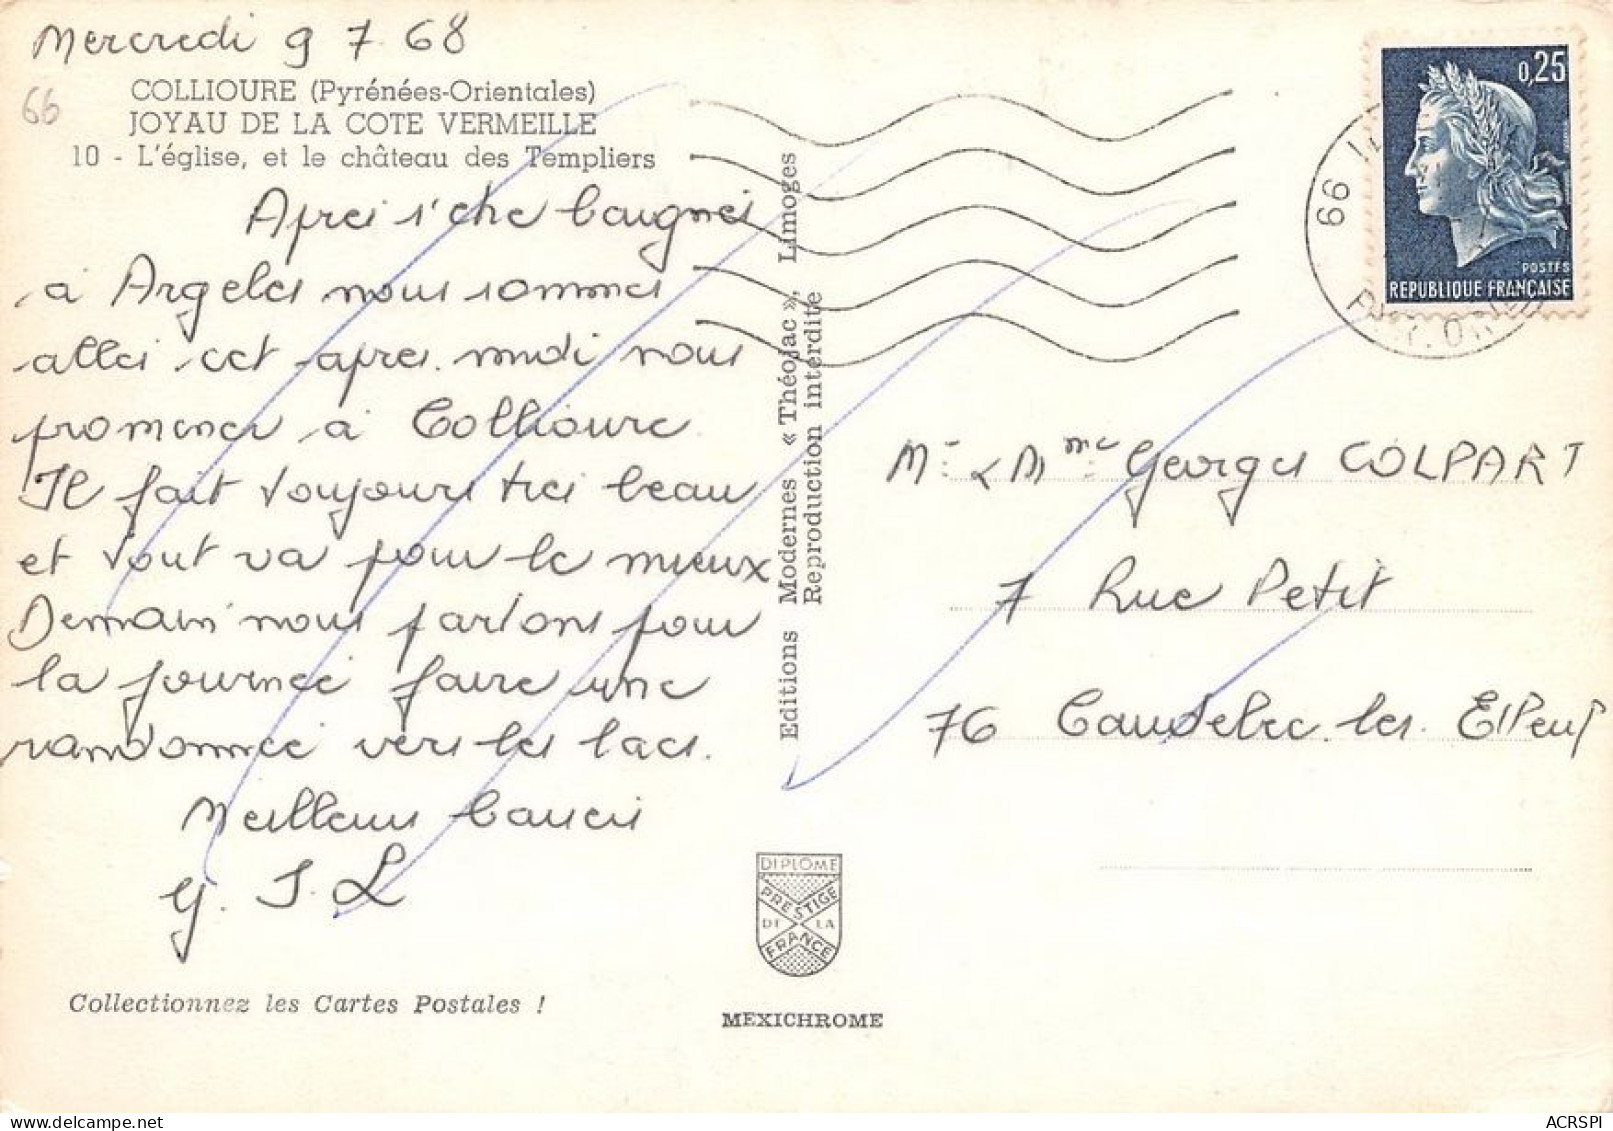 Mercredi 9 7 68
66
COLLIOURE (Pyrénées-Orientales)
JOYAU DE LA COTE VERMEILLE
10 - L'église, et le château des Templiers
Apres s'etre baignes
à Argeles nous sommes
alles cet apres midi nous
promener à Collioure
Il fait toujours tres beau
et tout va pour le mieux
Demain nous partons pour
la journée faire une
randonnée vers les lacs.
Meilleurs baisers
G. J. L
Collectionnez les Cartes Postales !
Editions Modernes « Théojac », Limoges
Reproduction interdite
DIPLÔME
PRESTIGE
DE LA
FRANCE
MEXICHROME
0,25
POSTES
REPUBLIQUE FRANÇAISE
66
Mr & Mme Georges COLPART
7 Rue Petit
76 Caudebec les Elbeuf
ACRSPI